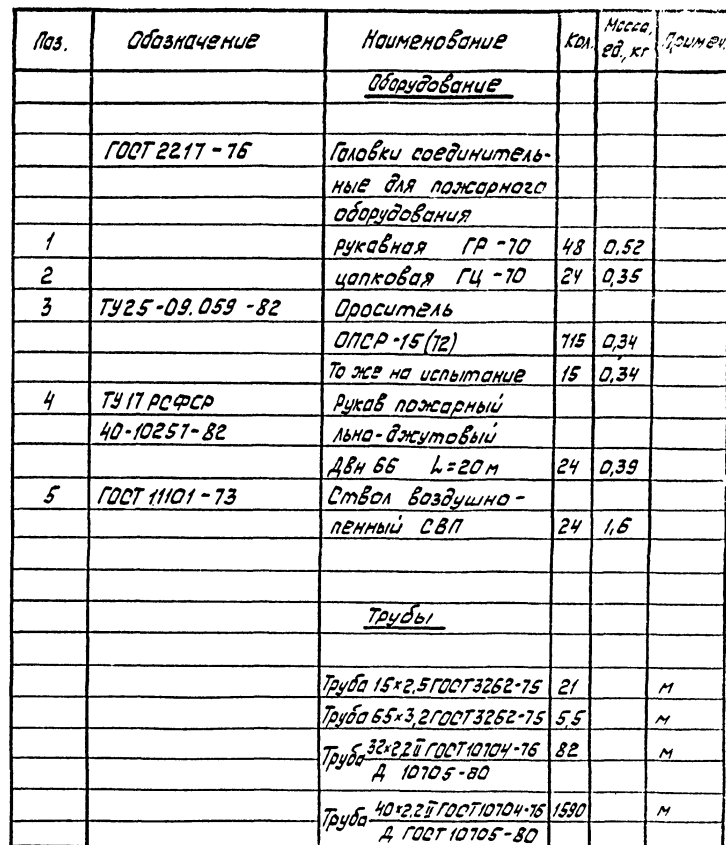 Поз. Обозначение Наименование Кол. Масса, ед., кг Примеч.
Оборудование
ГОСТ 2217-76 Головки соединитель-
ные для пожарного
оборудования
1 рукавная ГР-70 48 0,52
2 цапковая ГЦ-70 24 0,35
3 ТУ25-09.059-82 Ороситель
ОПСР-15(72) 715 0,34
То же на испытание 15 0,34
4 ТУ 17 РСФСР Рукав пожарный
40-10257-82 льно-джутовый
ДВН 66 L=20м 24 0,39
5 ГОСТ 11101-73 Ствол воздушно-
пенный СВП 24 1,6
Трубы
Труба 15×2,5 ГОСТ 3262-75 21 м
Труба 65×3,2 ГОСТ 3262-75 5,5 м
Труба 32×2,2 II ГОСТ 10704-76 82 м
Д 10705-80
Труба 40×2.2 II ГОСТ 10704-76 1590 м
Д ГОСТ 10705-80